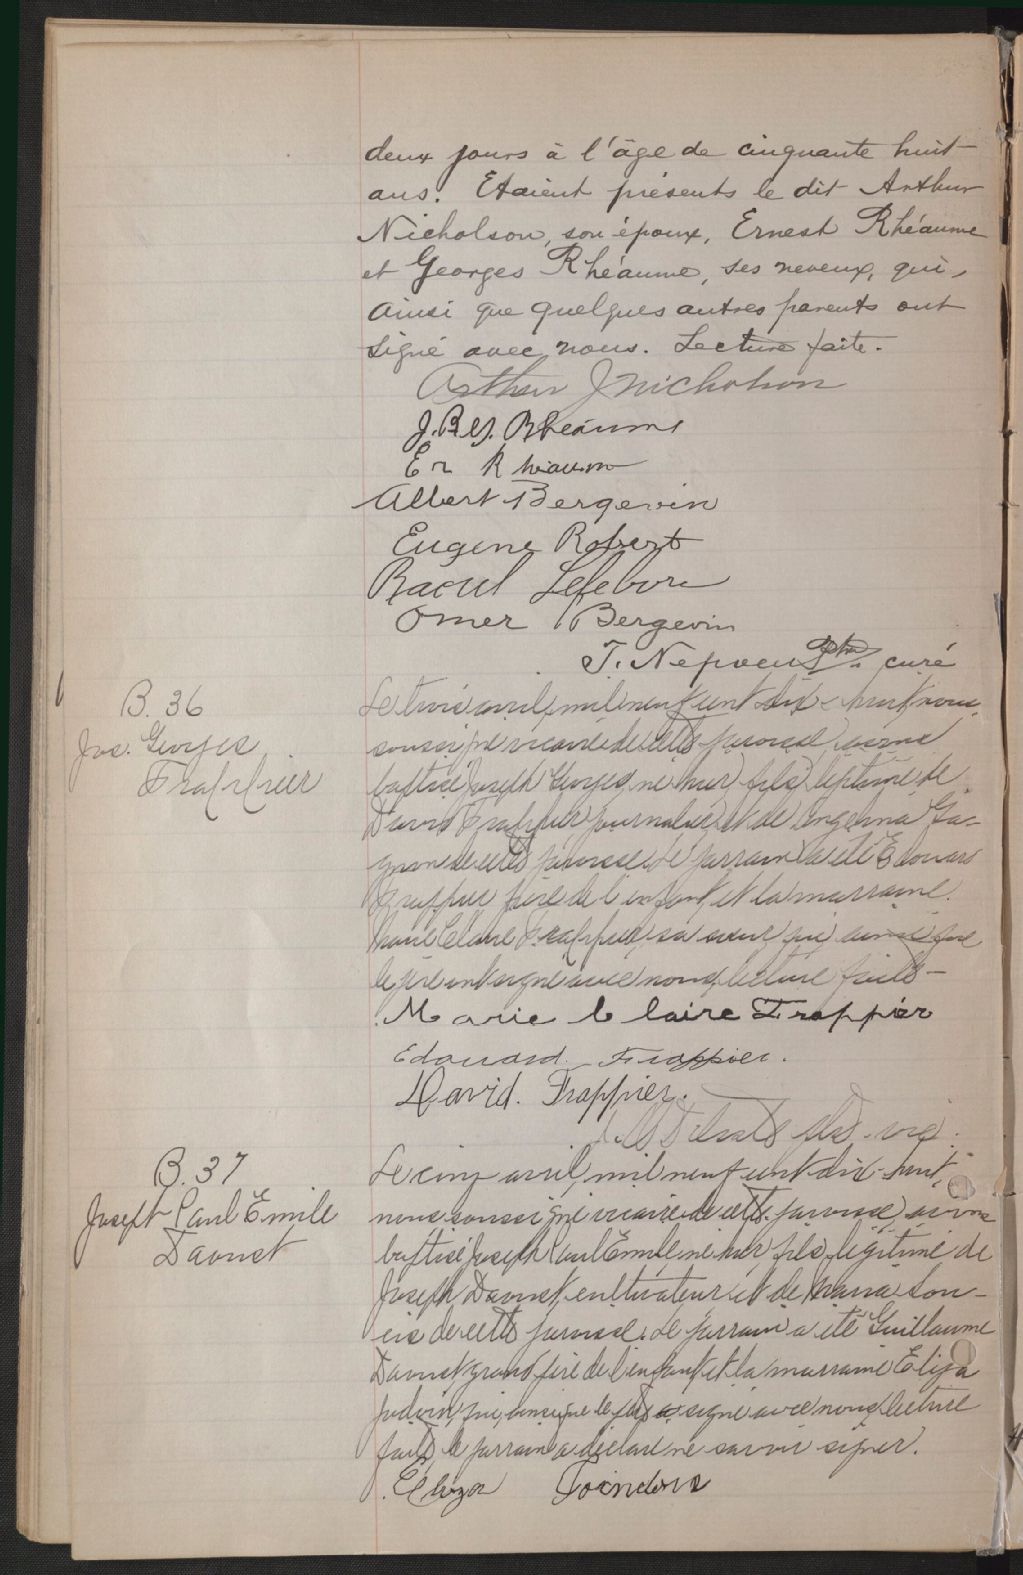 deux jours à l'âge de cinquante huit
ans. Etaient présents le dit Arthur
Nicholson, son époux, Ernest Rhéaume
et Georges Rhéaume, ses neveux, qui,
ainsi que quelques autres parents ont
signé avec nous. Lecture faite.
Arthur J Nicholson
J. Bte Rhéaume
Er Rhéaume
Albert Bergevin
Eugene Robert
Raoul Lefebvre
Omer Bergevin
J. Nepveu ptre curé
B. 36
Jos. Georges
Frappier
Le trois avril, mil neuf cent dix-huit, nous,
soussigné vicaire de cette paroisse, avons
baptisé Joseph Georges, né hier, fils légitime de
David Frappier journalier et de Angelina Ga-
gnon de cette paroisse. Le parrain a été Edouard
Frappier frère de l'enfant, et la marraine
Marie Claire Frappier, sa soeur qui ainsi que
le père ont signé avec nous, lecture faite-
Marie Claire Frappier
Edouard Frappier.
David. Frappier.
ptre. vic.
B. 37
Joseph Paul Emile
Daoust
Le cinq avril, mil neuf cent dix-huit,
nous, soussigné vicaire de cette paroisse, avons
baptisé Joseph Paul Emile, né hier, fils légitime de
Joseph Daoust, cultivateur et de Maria
de cette paroisse. Le parrain a été Guillaume
Daoust grand père de l'enfant, et la marraine Eliza
qui, ainsi que le père a signé avec nous, lecture
faite, le parrain a déclaré ne savoir signer.
Eliza